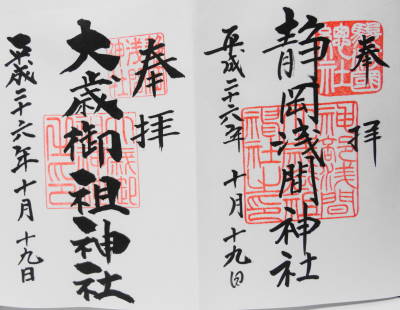 奉拝
静岡浅間神社
平成二十六年十月十九日
奉拝
大歳御祖神社
平成二十六年十月十九日